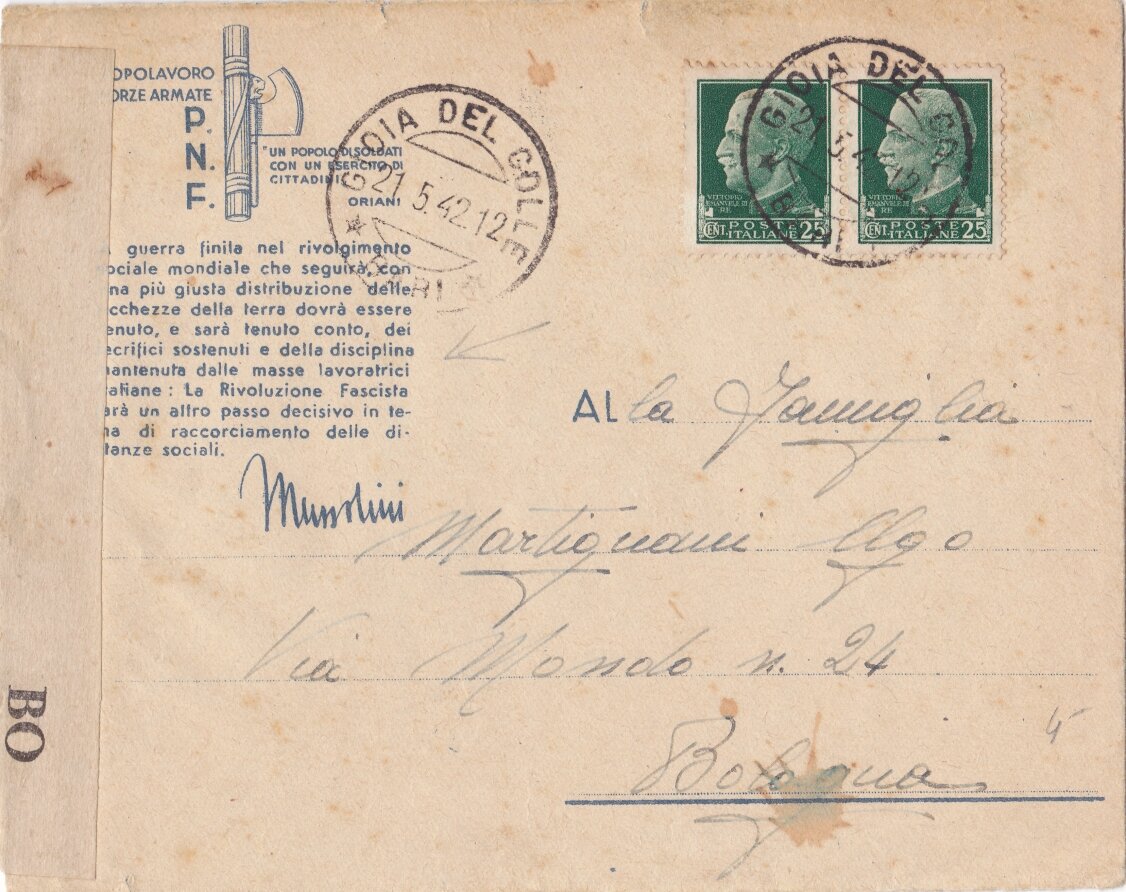 OPOLAVORO
ORZE ARMATE
P.
N.
F.
"UN POPOLO DI SOLDATI
CON UN ESERCITO DI
CITTADINI
ORIANI
guerra finila nel rivolgimento
ociale mondiale che seguirà, con
na più giusta distribuzione delle
cchezze della terra dovrà essere
enuto, e sarà tenuto conto, dei
ecrifici sostenuti e della disciplina
mantenuta dalle masse lavoratrici
taliane: La Rivoluzione Fascista
arà un altro passo decisivo in te-
ma di raccorciamento delle di-
tanze sociali.
Mussolini
GIOIA DEL COLLE
21.5.42.12
BARI
GIOIA DEL COLLE
21.5.42.12
VITTORIO
EMANUELE III
RE
CENT. POSTE ITALIANE 25
VITTORIO
EMANUELE III
RE
CENT. POSTE ITALIANE 25
ALla Famiglia
Martignani Olgo
Via Mondo n. 24
Bologna
BO